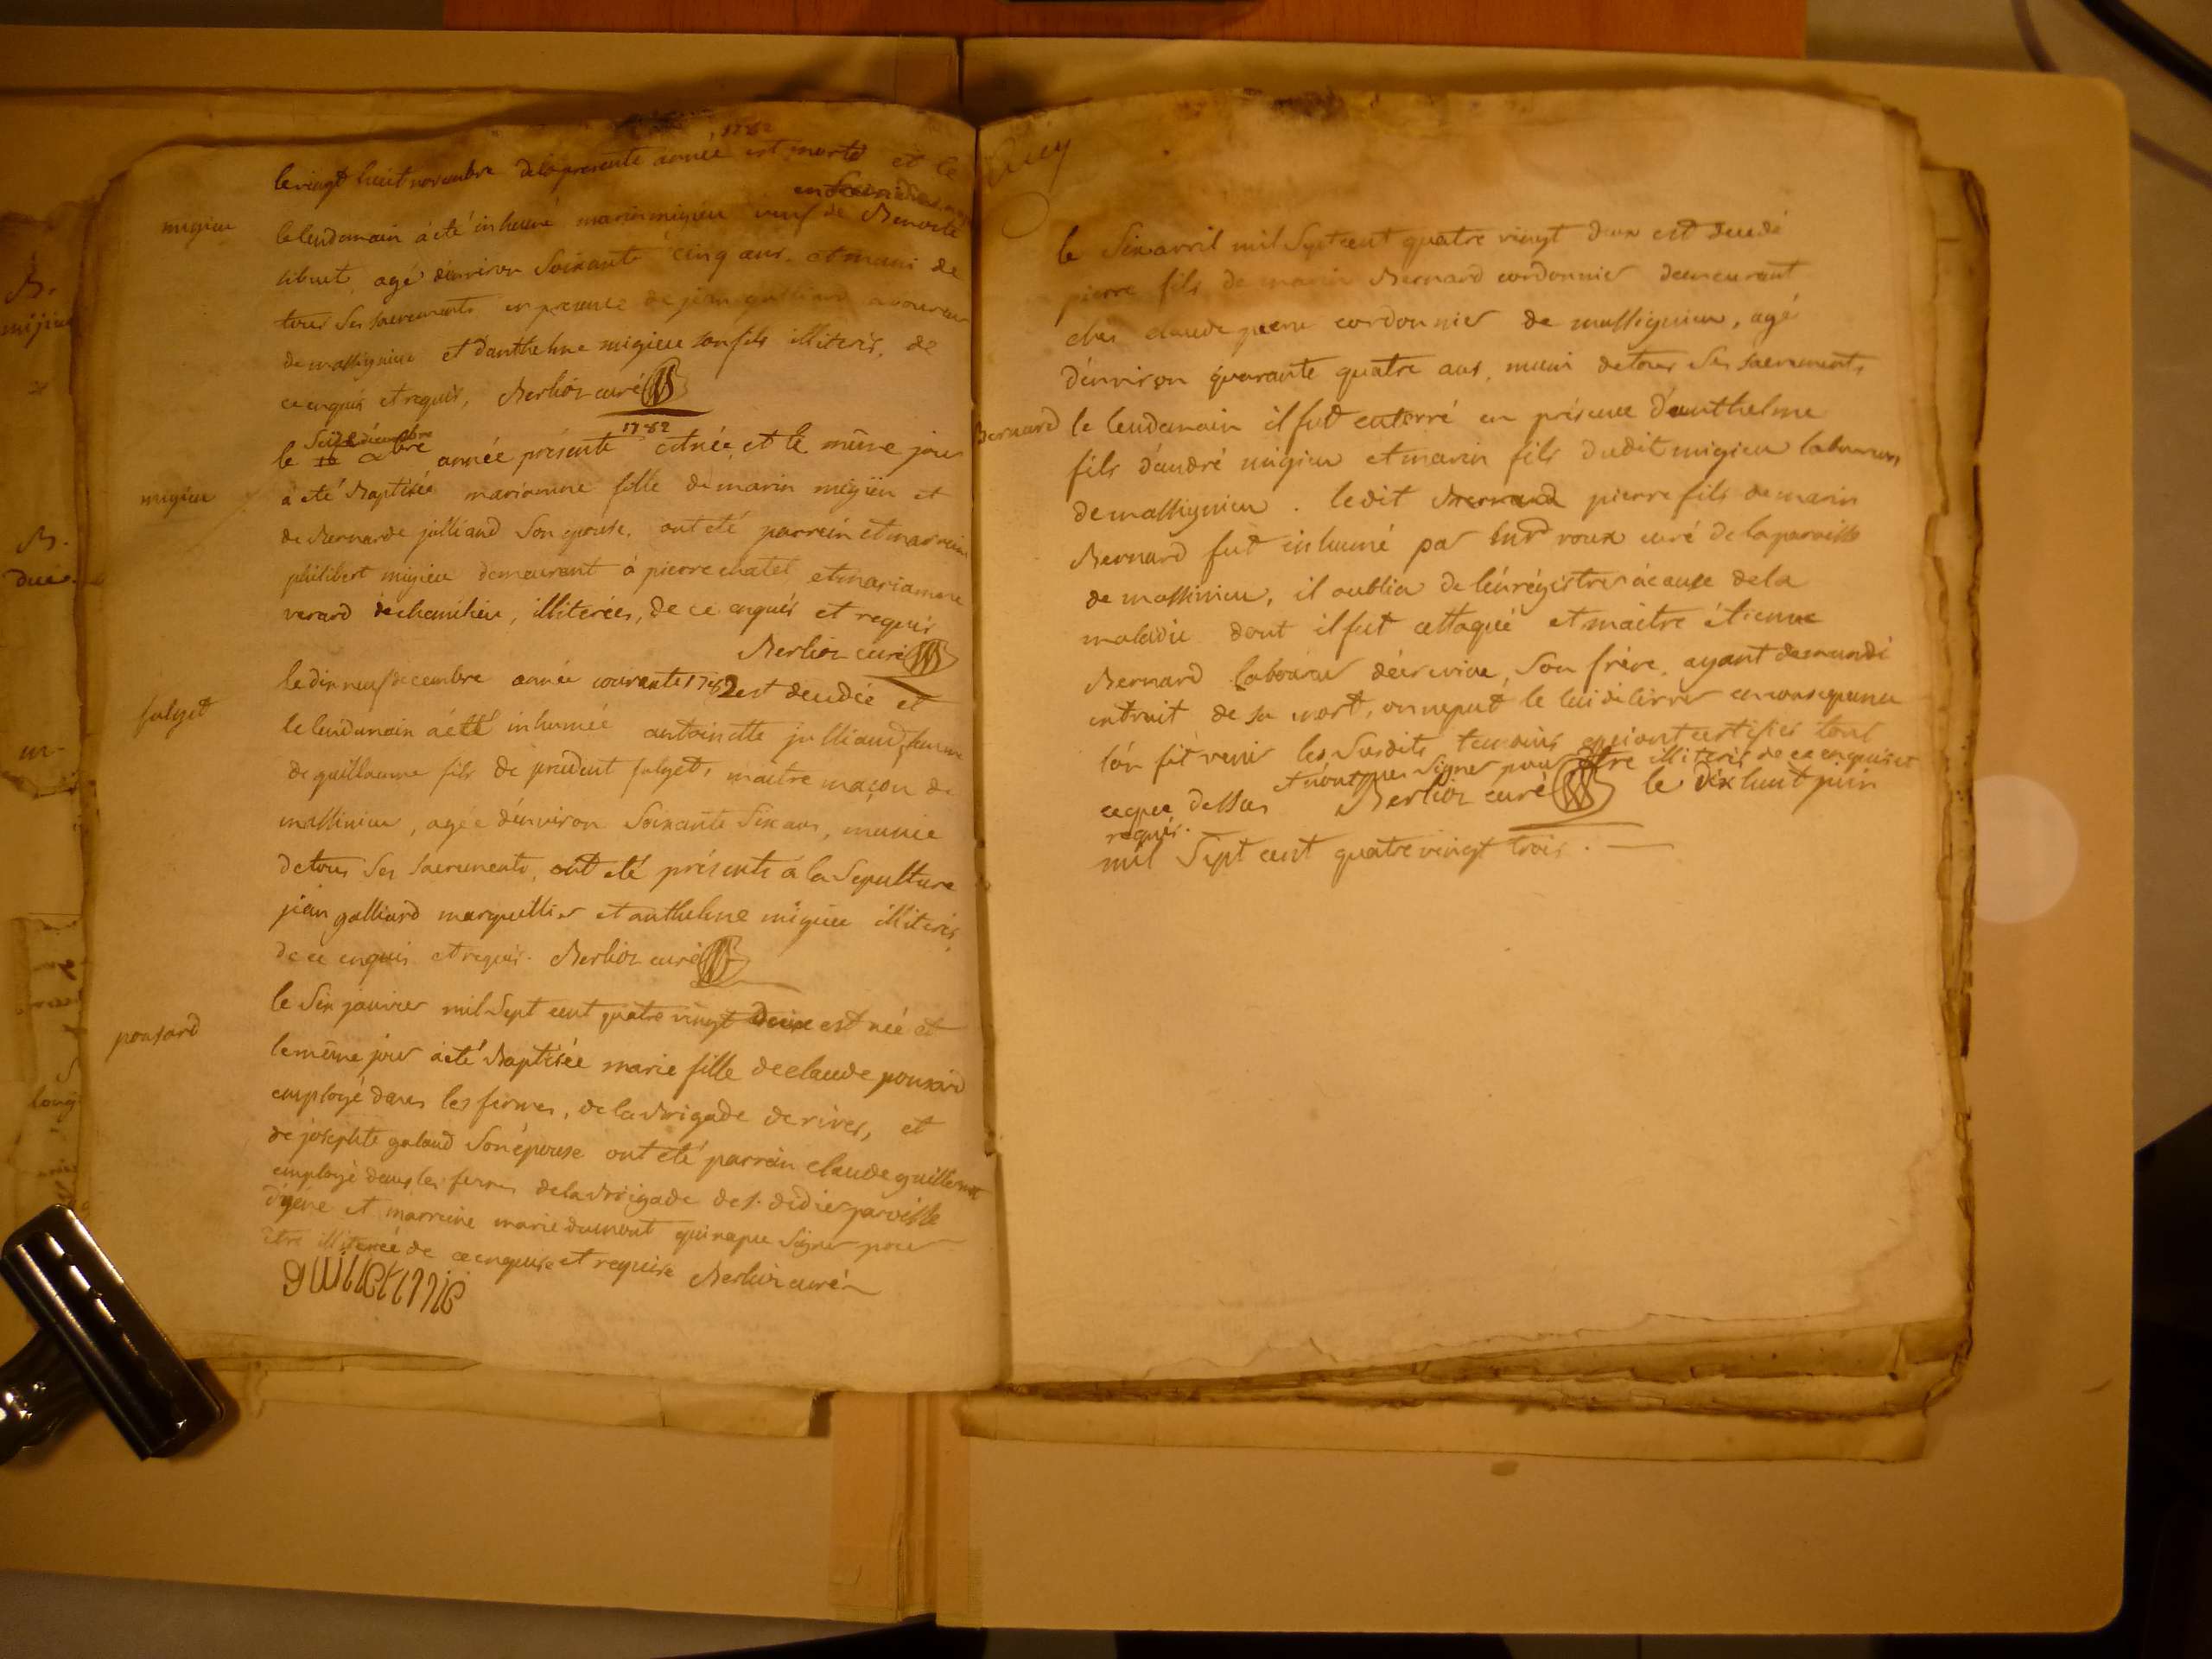 1782
le vingt huit novembre de la presente année est morte et le
migieu
le lendemain a été inhumé marin migieu veuf de Benoite
agé d'environ soixante cinq ans, et muni de
tous ses sacrements en presence de jean galliard
de massignieu et d'anthelme migieu son fils illiterés, de
ce enquis et requis, Berlioz curé
1782
seize decembre
le 16 xbre année présente est née et le même jour
migieu
a été Baptisée marianne fille de marin migieu et
de Bernarde julliand son epouse, ont été parrein et marreine
philibert migieu demeurant à pierre chatel et mariamne
verard de chemilieu, illiterées, de ce enquis et requis
Berlioz curé
le dix neuf decembre année courante 1782 est decedée et
fulget
le lendemain a été inhumée antoinette julliand, femme
de guillaume fils de prudent fulget, maitre maçon de
massinieu, agée d'environ soixante six ans, munie
de tous ses sacrements, ont été présents à la sepulture
jean galliard marguillier et anthelme migieu illiterés,
de ce enquis et requis. Berlioz curé
le six janvier mil sept cent quatre vingt deux est née et
ponsard
le même jour a été Baptisée marie fille de claude ponsard
employé dans les fermes, de la Brigade de rives, et
de josephte galand son épouse ont été parrein claude guillermit
employé dans les fermes de la Brigade de s. didier paroisse
d'yene et marreine marie dumont qui n'a pu signer pour
être illiterée de ce enquise et requise Berlioz curé
le six avril mil sept cent quatre vingt deux est decedé
pierre fils de marin Bernard cordonnier demeurant
ches claude pierre cordonnier de massignieu, agé
d'environ quarante quatre ans, muni de tous ses sacrements
Bernard
le lendemain il fut enterré en présence d'anthelme
fils d'andré migieu et marin fils dudit migieu laboureurs
de massignieu. ledit Bernard pierre fils de marin
Bernard fut inhumé par roux curé de la paroisse
de massinieu, il oublia de l'enrégistrer à cause de la
maladie dont il fut attaqué et maitre étienne
Bernard laboureur son frère, ayant demandé
extrait de sa mort, on ne put le lui delivrer en consequence
l'on fit venir les susdits temoins qui ont certifiés tout
et n'ont pu signer pour être illiterés de ce enquis et
ce que dessus Berlioz curé le dix huit juin
requis.
mil sept cent quatre vingt trois.